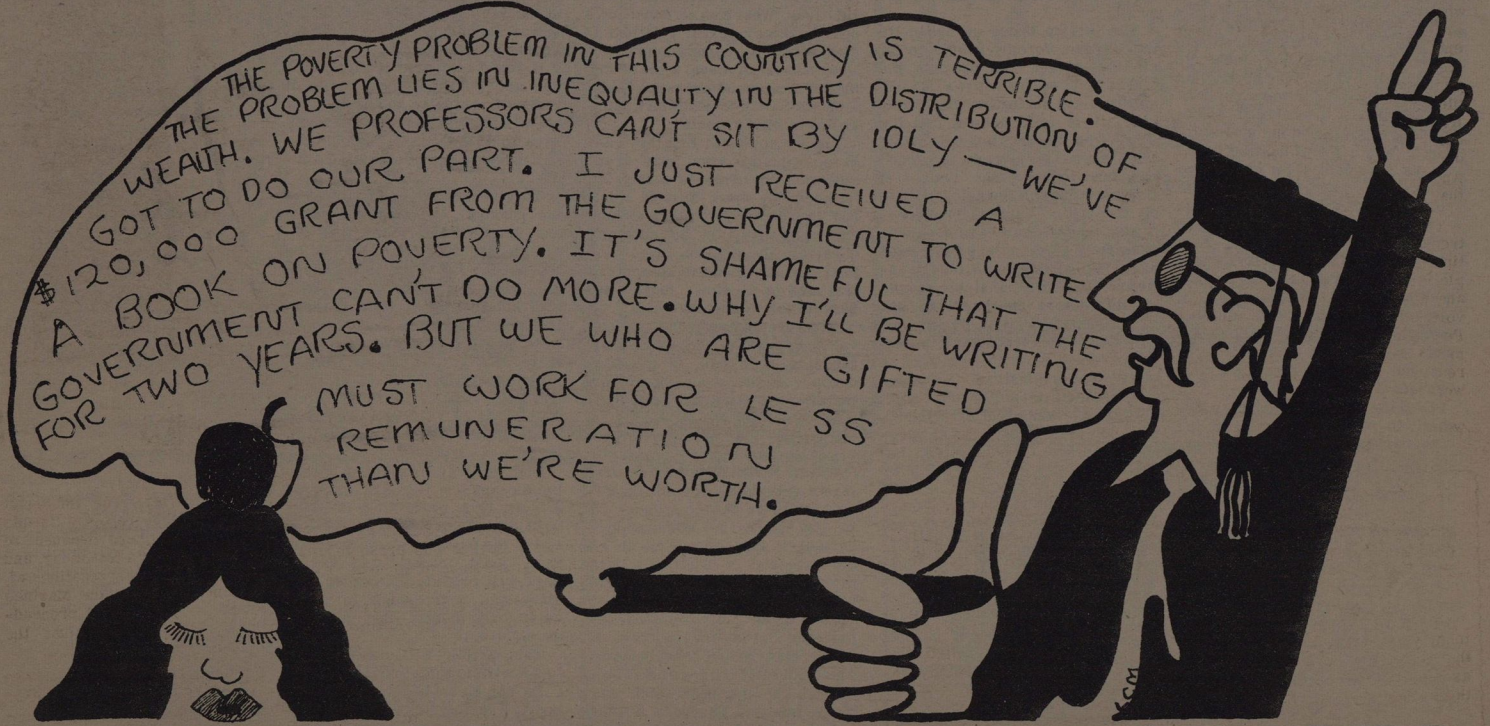 THE POVERTY PROBLEM IN THIS COUNTRY IS TERRIBLE.
THE PROBLEM LIES IN INEQUALITY IN THE DISTRIBUTION OF
WEALTH. WE PROFESSORS CAN'T SIT BY IDLY — WE'VE
GOT TO DO OUR PART. I JUST RECEIVED A
$120,000 GRANT FROM THE GOVERNMENT TO WRITE
A BOOK ON POVERTY. IT'S SHAMEFUL THAT THE
GOVERNMENT CAN'T DO MORE. WHY I'LL BE WRITING
FOR TWO YEARS. BUT WE WHO ARE GIFTED
MUST WORK FOR LESS
REMUNERATION
THAN WE'RE WORTH.